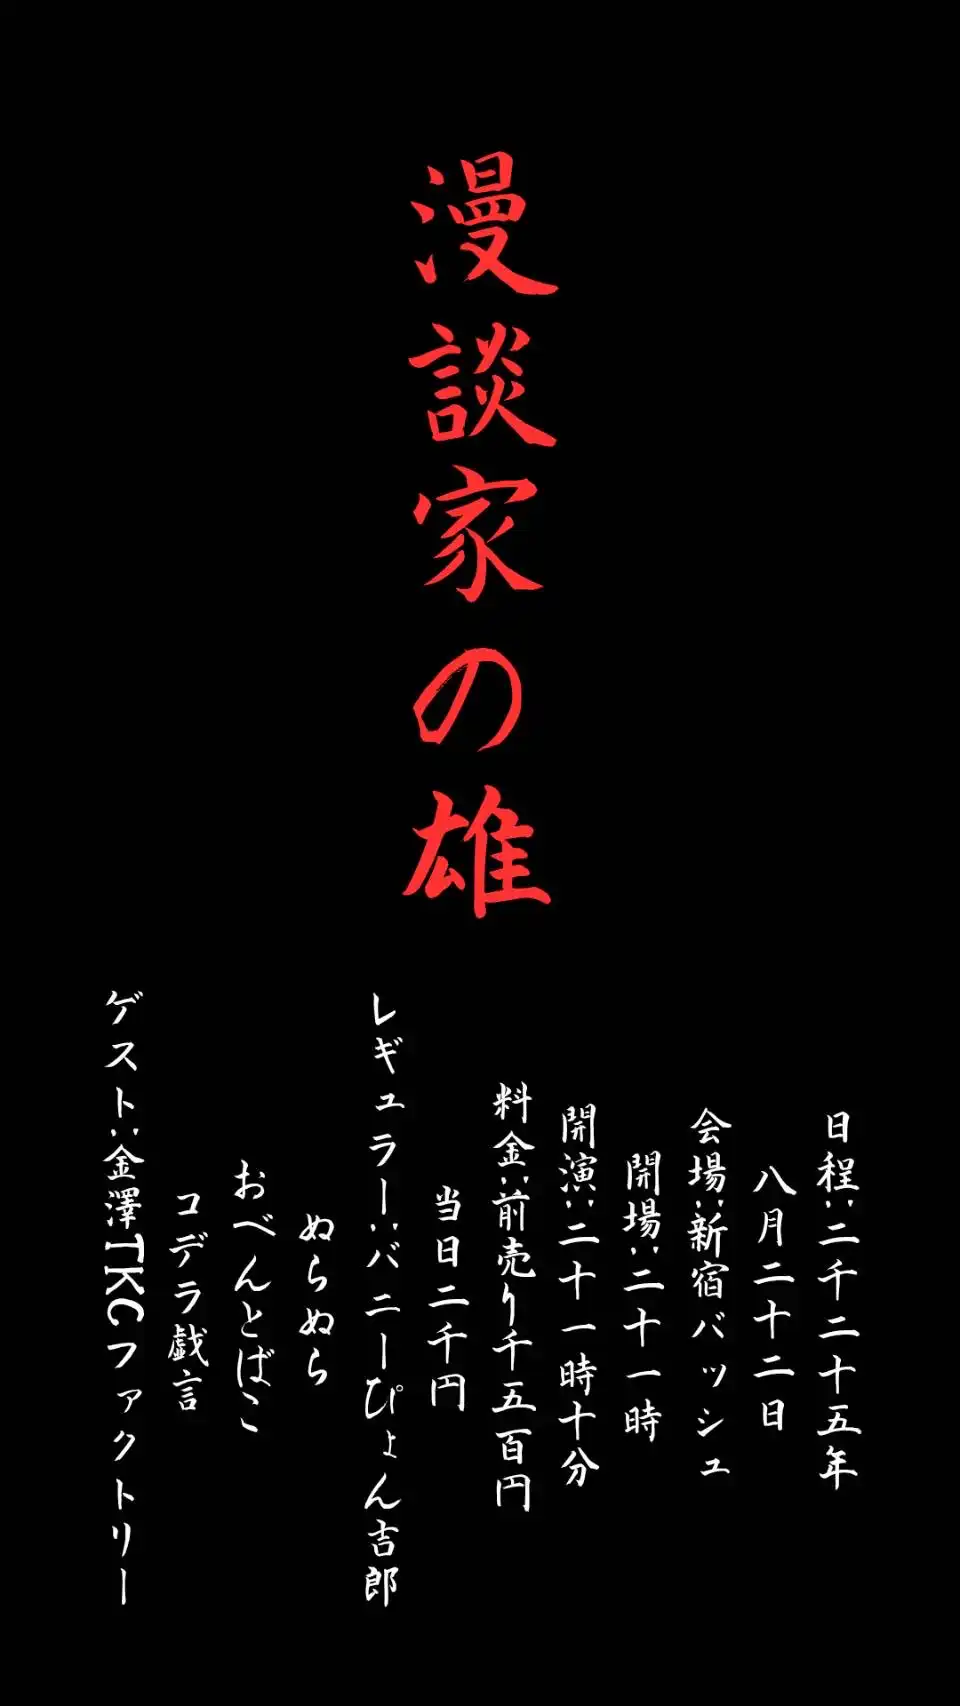 漫談家の雄
日程:二千二十五年
八月二十二日
会場:新宿バッシュ
開場:二十一時
開演:二十一時十分
料金:前売り千五百円
当日二千円
レギュラー:バニーぴょん吉郎
ぬらぬら
おべんとばこ
コデラ戯言
ゲスト:金澤TKCファクトリー